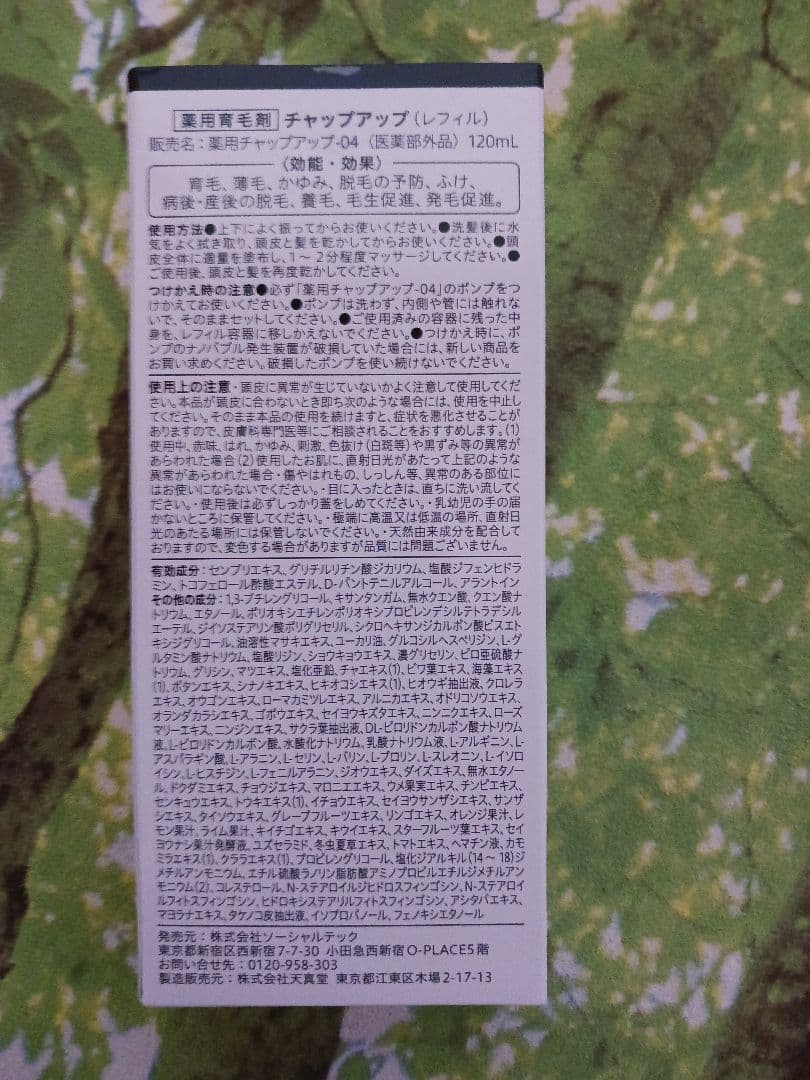 薬用育毛剤 チャップアップ（レフィル）
販売名：薬用チャップアップ-04〈医薬部外品〉120mL
〈効能・効果〉
育毛、薄毛、かゆみ、脱毛の予防、ふけ、
病後・産後の脱毛、養毛、毛生促進、発毛促進。
使用方法●上下によく振ってからお使いください。●洗髪後に水
気をよく拭き取り、頭皮と髪を乾かしてからお使いください。●頭
皮全体に適量を塗布し、1〜2分程度マッサージしてください。●
ご使用後、頭皮と髪を再度乾かしてください。
つけかえ時の注意●必ず「薬用チャップアップ-04」のポンプをつ
けかえてお使いください。●ポンプは洗わず、内側や管には触れな
いで、そのままセットしてください。●ご使用済みの容器に残った中
身を、レフィル容器に移しかえないでください。●つけかえ時に、ポ
ンプのナノバブル発生装置が破損していた場合には、新しい商品を
お買い求めください。破損したポンプを使い続けないでください。
使用上の注意・頭皮に異常が生じていないかよく注意して使用してくだ
さい。本品が頭皮に合わないとき即ち次のような場合には、使用を中止し
てください。そのまま本品の使用を続けますと、症状を悪化させることが
ありますので、皮膚科専門医等にご相談されることをおすすめします。(1)
使用中、赤味、はれ、かゆみ、刺激、色抜け(白斑等)や黒ずみ等の異常が
あらわれた場合(2)使用したお肌に、直射日光があたって上記のような
異常があらわれた場合・傷やはれもの、しっしん等、異常のある部位に
はお使いにならないでください。・目に入ったときは、直ちに洗い流してく
ださい。・使用後は必ずしっかり蓋をしめてください。・乳幼児の手の届
かないところに保管してください。・極端に高温又は低温の場所、直射日
光のあたる場所には保管しないでください。・天然由来成分を配合して
おりますので、変色する場合がありますが品質には問題ございません。
有効成分：センブリエキス、グリチルリチン酸ジカリウム、塩酸ジフェンヒドラ
ミン、トコフェロール酢酸エステル、D-パントテニルアルコール、アラントイン
その他の成分：1,3-ブチレングリコール、キサンタンガム、無水クエン酸、クエン酸ナ
トリウム、エタノール、ポリオキシエチレンポリオキシプロピレンデシルテトラデシル
エーテル、ジイソステアリン酸ポリグリセリル、シクロヘキサンジカルボン酸ビスエト
キシジグリコール、油溶性マサキエキス、ユーカリ油、グルコシルヘスペリジン、L-グ
ルタミン酸ナトリウム、塩酸リジン、ショウキョウエキス、濃グリセリン、ピロ亜硫酸ナ
トリウム、グリシン、マツエキス、塩化亜鉛、チャエキス(1)、ビワ葉エキス、海藻エキス
(1)、ボタンエキス、シナノキエキス、ヒキオコシエキス(1)、ヒオウギ抽出液、クロレラ
エキス、オウゴンエキス、ローマカミツレエキス、アルニカエキス、オドリコソウエキス、
オランダカラシエキス、ゴボウエキス、セイヨウキズタエキス、ニンニクエキス、ローズ
マリーエキス、ニンジンエキス、サクラ葉抽出液、DL-ピロリドンカルボン酸ナトリウム
液、L-ピロリドンカルボン酸、水酸化ナトリウム、乳酸ナトリウム液、L-アルギニン、L-
アスパラギン酸、L-アラニン、L-セリン、L-バリン、L-プロリン、L-スレオニン、L-イソロ
イシン、L-ヒスチジン、L-フェニルアラニン、ジオウエキス、ダイズエキス、無水エタノー
ル、ドクダミエキス、チョウジエキス、マロニエエキス、ウメ果実エキス、チンピエキス、
センキュウエキス、トウキエキス(1)、イチョウエキス、セイヨウサンザシエキス、サンザ
シエキス、タイソウエキス、グレープフルーツエキス、リンゴエキス、オレンジ果汁、レ
モン果汁、ライム果汁、キイチゴエキス、キウイエキス、スターフルーツ葉エキス、セイ
ヨウナシ果汁発酵液、ユズセラミド、冬虫夏草エキス、トマトエキス、ヘマチン液、カモ
ミラエキス(1)、クララエキス(1)、プロピレングリコール、塩化ジアルキル(14〜18)ジ
メチルアンモニウム、エチル硫酸ラノリン脂肪酸アミノプロピルエチルジメチルアン
モニウム(2)、コレステロール、N-ステアロイルジヒドロスフィンゴシン、N-ステアロイ
ルフィトスフィンゴシン、ヒドロキシステアリルフィトスフィンゴシン、アシタバエキス、
マヨラナエキス、タケノコ皮抽出液、イソプロパノール、フェノキシエタノール
発売元：株式会社ソーシャルテック
東京都新宿区西新宿7-7-30 小田急西新宿O-PLACE5階
お問い合せ先：0120-958-303
製造販売元：株式会社天真堂 東京都江東区木場2-17-13